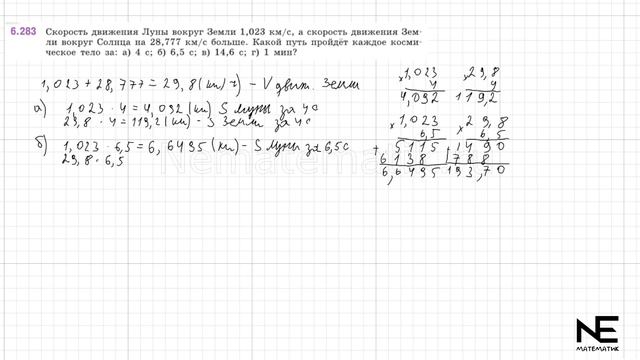 6.283 Скорость движения Луны вокруг Земли 1,023 км/с, а скорость движения Зем-
ли вокруг Солнца на 28,777 км/с больше. Какой путь пройдёт каждое косми-
ческое тело за: а) 4 с; б) 6,5 с; в) 14,6 с; г) 1 мин?
1,023 + 28,777 = 29,8 (км/ч) - V движ. Земли
а) 1,023 · 4 = 4,092 (км) S луны за 4 с
29,8 · 4 = 119,2 (км) - S Земли за 4 с
б) 1,023 · 6,5 = 6,6495 (км) - S луны за 6,5 с
29,8 · 6,5
×1,023 ×29,8
4 4
4,092 119,2
×1,023 ×29,8
6,5 6,5
+5115 +1490
6138 1788
6,6495 193,70
Nематематик
NE
МАТЕМАТИК